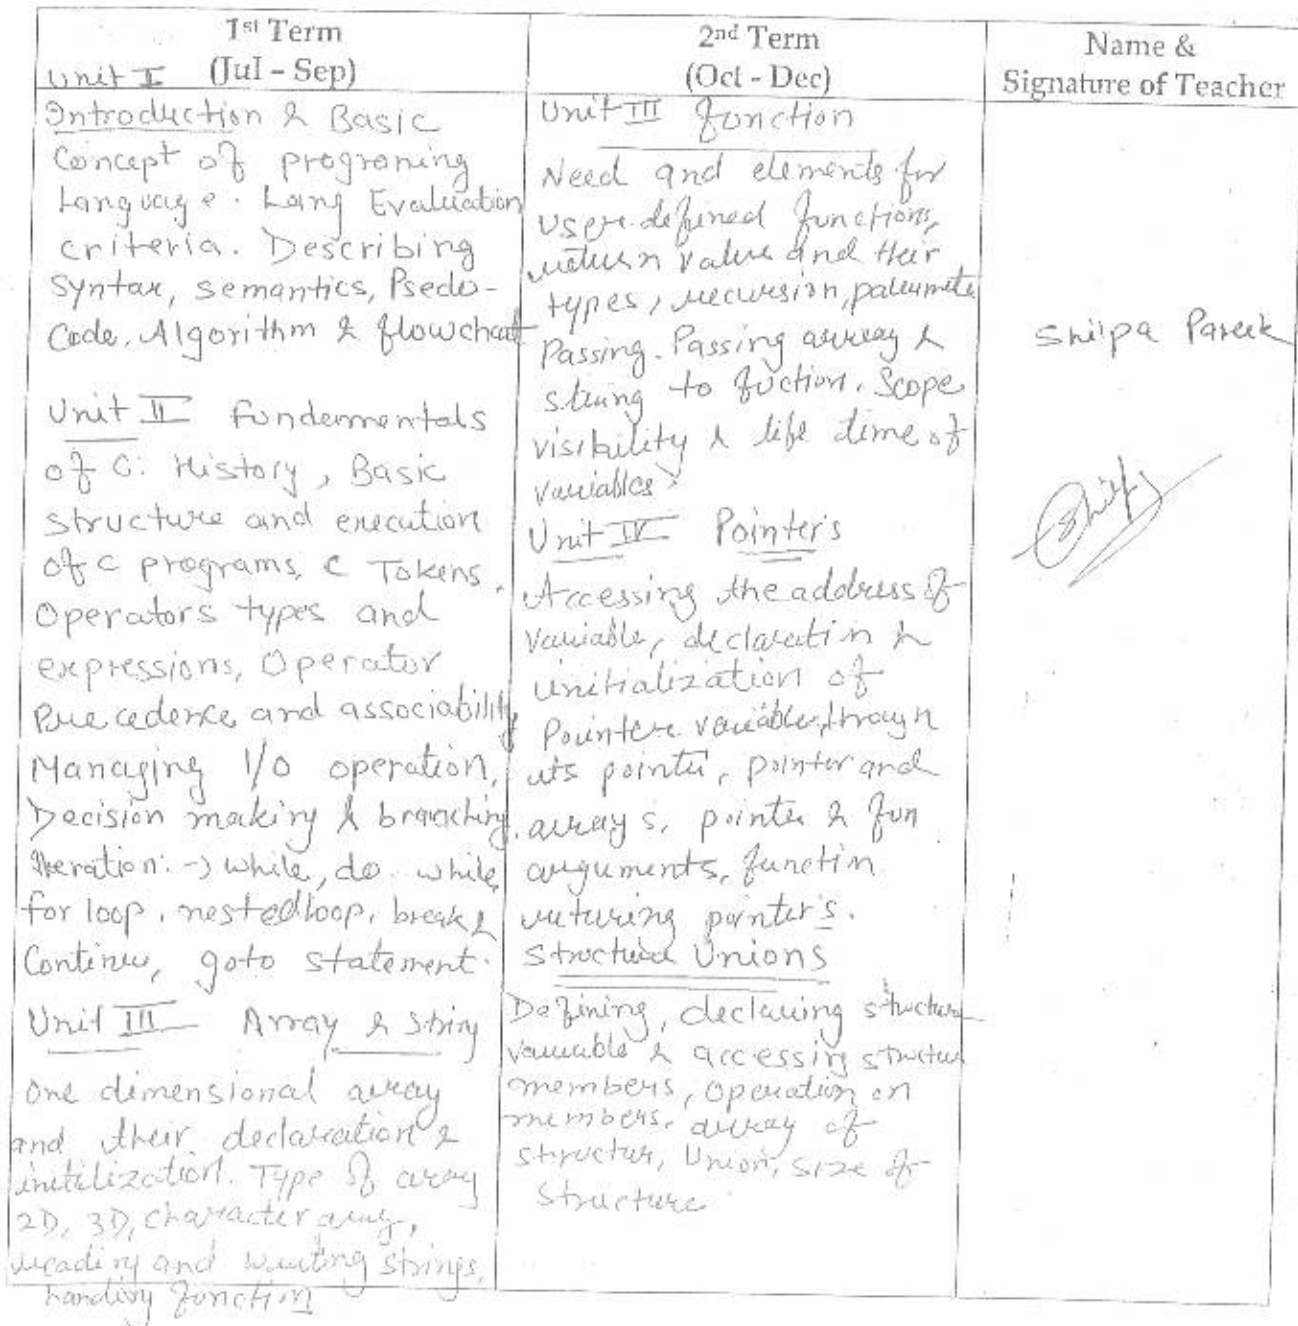 1st Term
(Jul - Sep)
Unit I
Introduction & Basic
Concept of programing
Language. Lang Evaluation
criteria. Describing
Syntax, semantics, Psedo-
Code, Algorithm & flowchart
Unit II fundermentals
of C: History, Basic
structure and execution
of c programs, c Tokens,
Operators types and
expressions, Operator
Precedence and associability
Managing I/O operation,
Decision making & branching.
Iteration: -> while, do while,
for loop, nested loop, break &
Continue, goto statement.
Unit III Array & String
One dimensional array
and their declaration &
initilization. Type of array
2D, 3D, character array,
reading and writing strings,
handling function
2nd Term
(Oct - Dec)
Unit III function
Need and elements for
user defined functions,
return value and their
types, recursion, parameter
Passing. Passing array &
string to fuction. Scope
visibility & life time of
variables
Unit IV Pointer's
Accessing the address of
variable, declaratin &
initialization of
Pointer variable, through
its pointer, pointer and
arrays, pointer & fun
arguments, functin
returing pointer's.
Structure Unions
Defining, declaring structure
variable & accessing structur
members, operation on
members, array of
structur, Union, size of
structure
Name &
Signature of Teacher
Shilpa Pareek
Shilpa